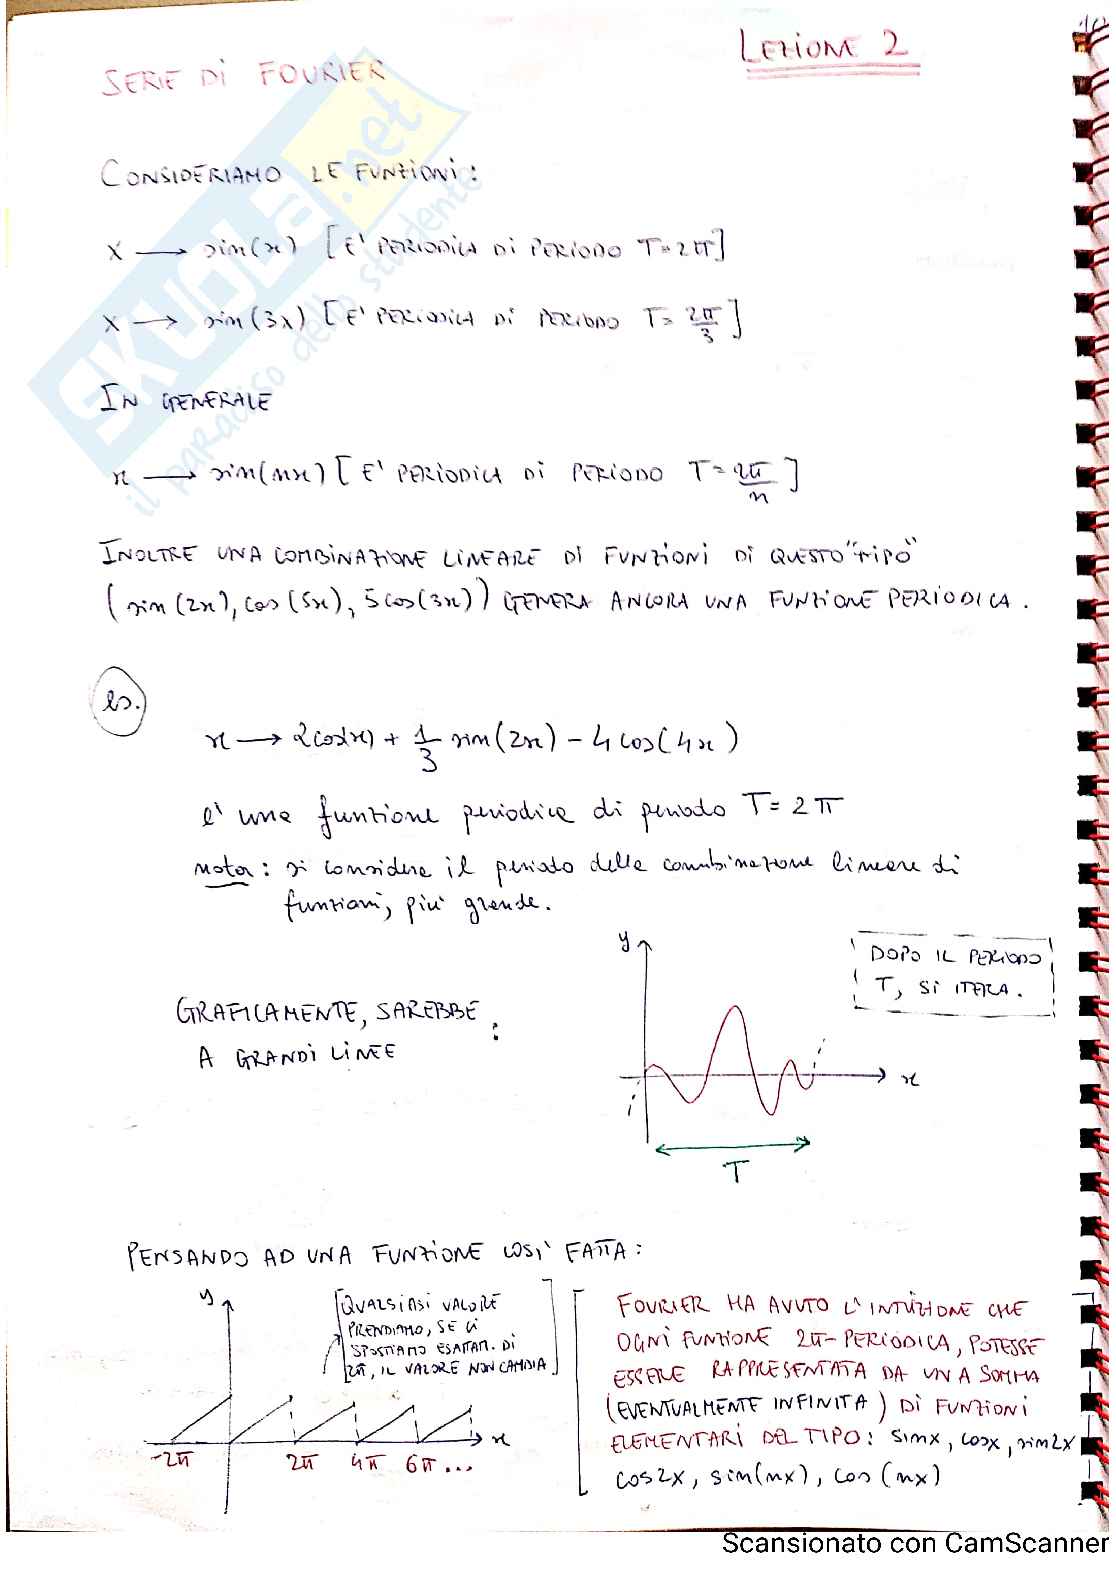 LEZIONE 2
SERIE DI FOURIER
CONSIDERIAMO LE FUNZIONI:
x → sin(x) [E' PERIODICA DI PERIODO T=2π]
x → sin(3x) [E' PERIODICA DI PERIODO T=2π/3]
IN GENERALE
x → sin(nx) [E' PERIODICA DI PERIODO T=2π/n]
INOLTRE UNA COMBINAZIONE LINEARE DI FUNZIONI DI QUESTO "TIPO"
(sin(2x), cos(5x), 5cos(3x)) GENERA ANCORA UNA FUNZIONE PERIODICA.
es.
x → 2cos(x) + 1/3 sin(2x) - 4cos(4x)
è una funzione periodica di periodo T=2π
nota: si considera il periodo della combinazione lineare di
funzioni, più grande.
y
DOPO IL PERIODO
T, SI ITERA.
GRAFICAMENTE, SAREBBE
A GRANDI LINEE :
x
T
PENSANDO AD UNA FUNZIONE COSI' FATTA:
y
[QUALSIASI VALORE
PRENDIAMO, SE CI
SPOSTIAMO ESATTAM. DI
2π, IL VALORE NON CAMBIA]
x
-2π 2π 4π 6π ...
[FOURIER HA AVUTO L'INTUIZIONE CHE
OGNI FUNZIONE 2π-PERIODICA, POTESSE
ESSERE RAPPRESENTATA DA UNA SOMMA
(EVENTUALMENTE INFINITA) DI FUNZIONI
ELEMENTARI DEL TIPO: sinx, cosx, sin2x
cos2x, sin(nx), cos(nx)]
SKUOLA.net
il paradiso dello studente
Scansionato con CamScanner